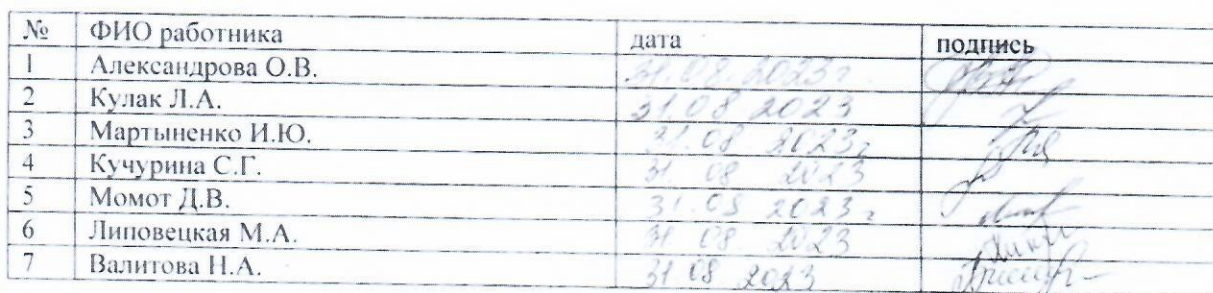 № ФИО работника дата подпись
1 Александрова О.В. 31.08.2023г.
2 Кулак Л.А. 31 08 2023
3 Мартыненко И.Ю. 31.08 2023г
4 Кучурина С.Г. 31. 08 2023
5 Момот Д.В. 31.08 2023г
6 Липовецкая М.А. 31 08 2023
7 Валитова Н.А. 31 08 2023